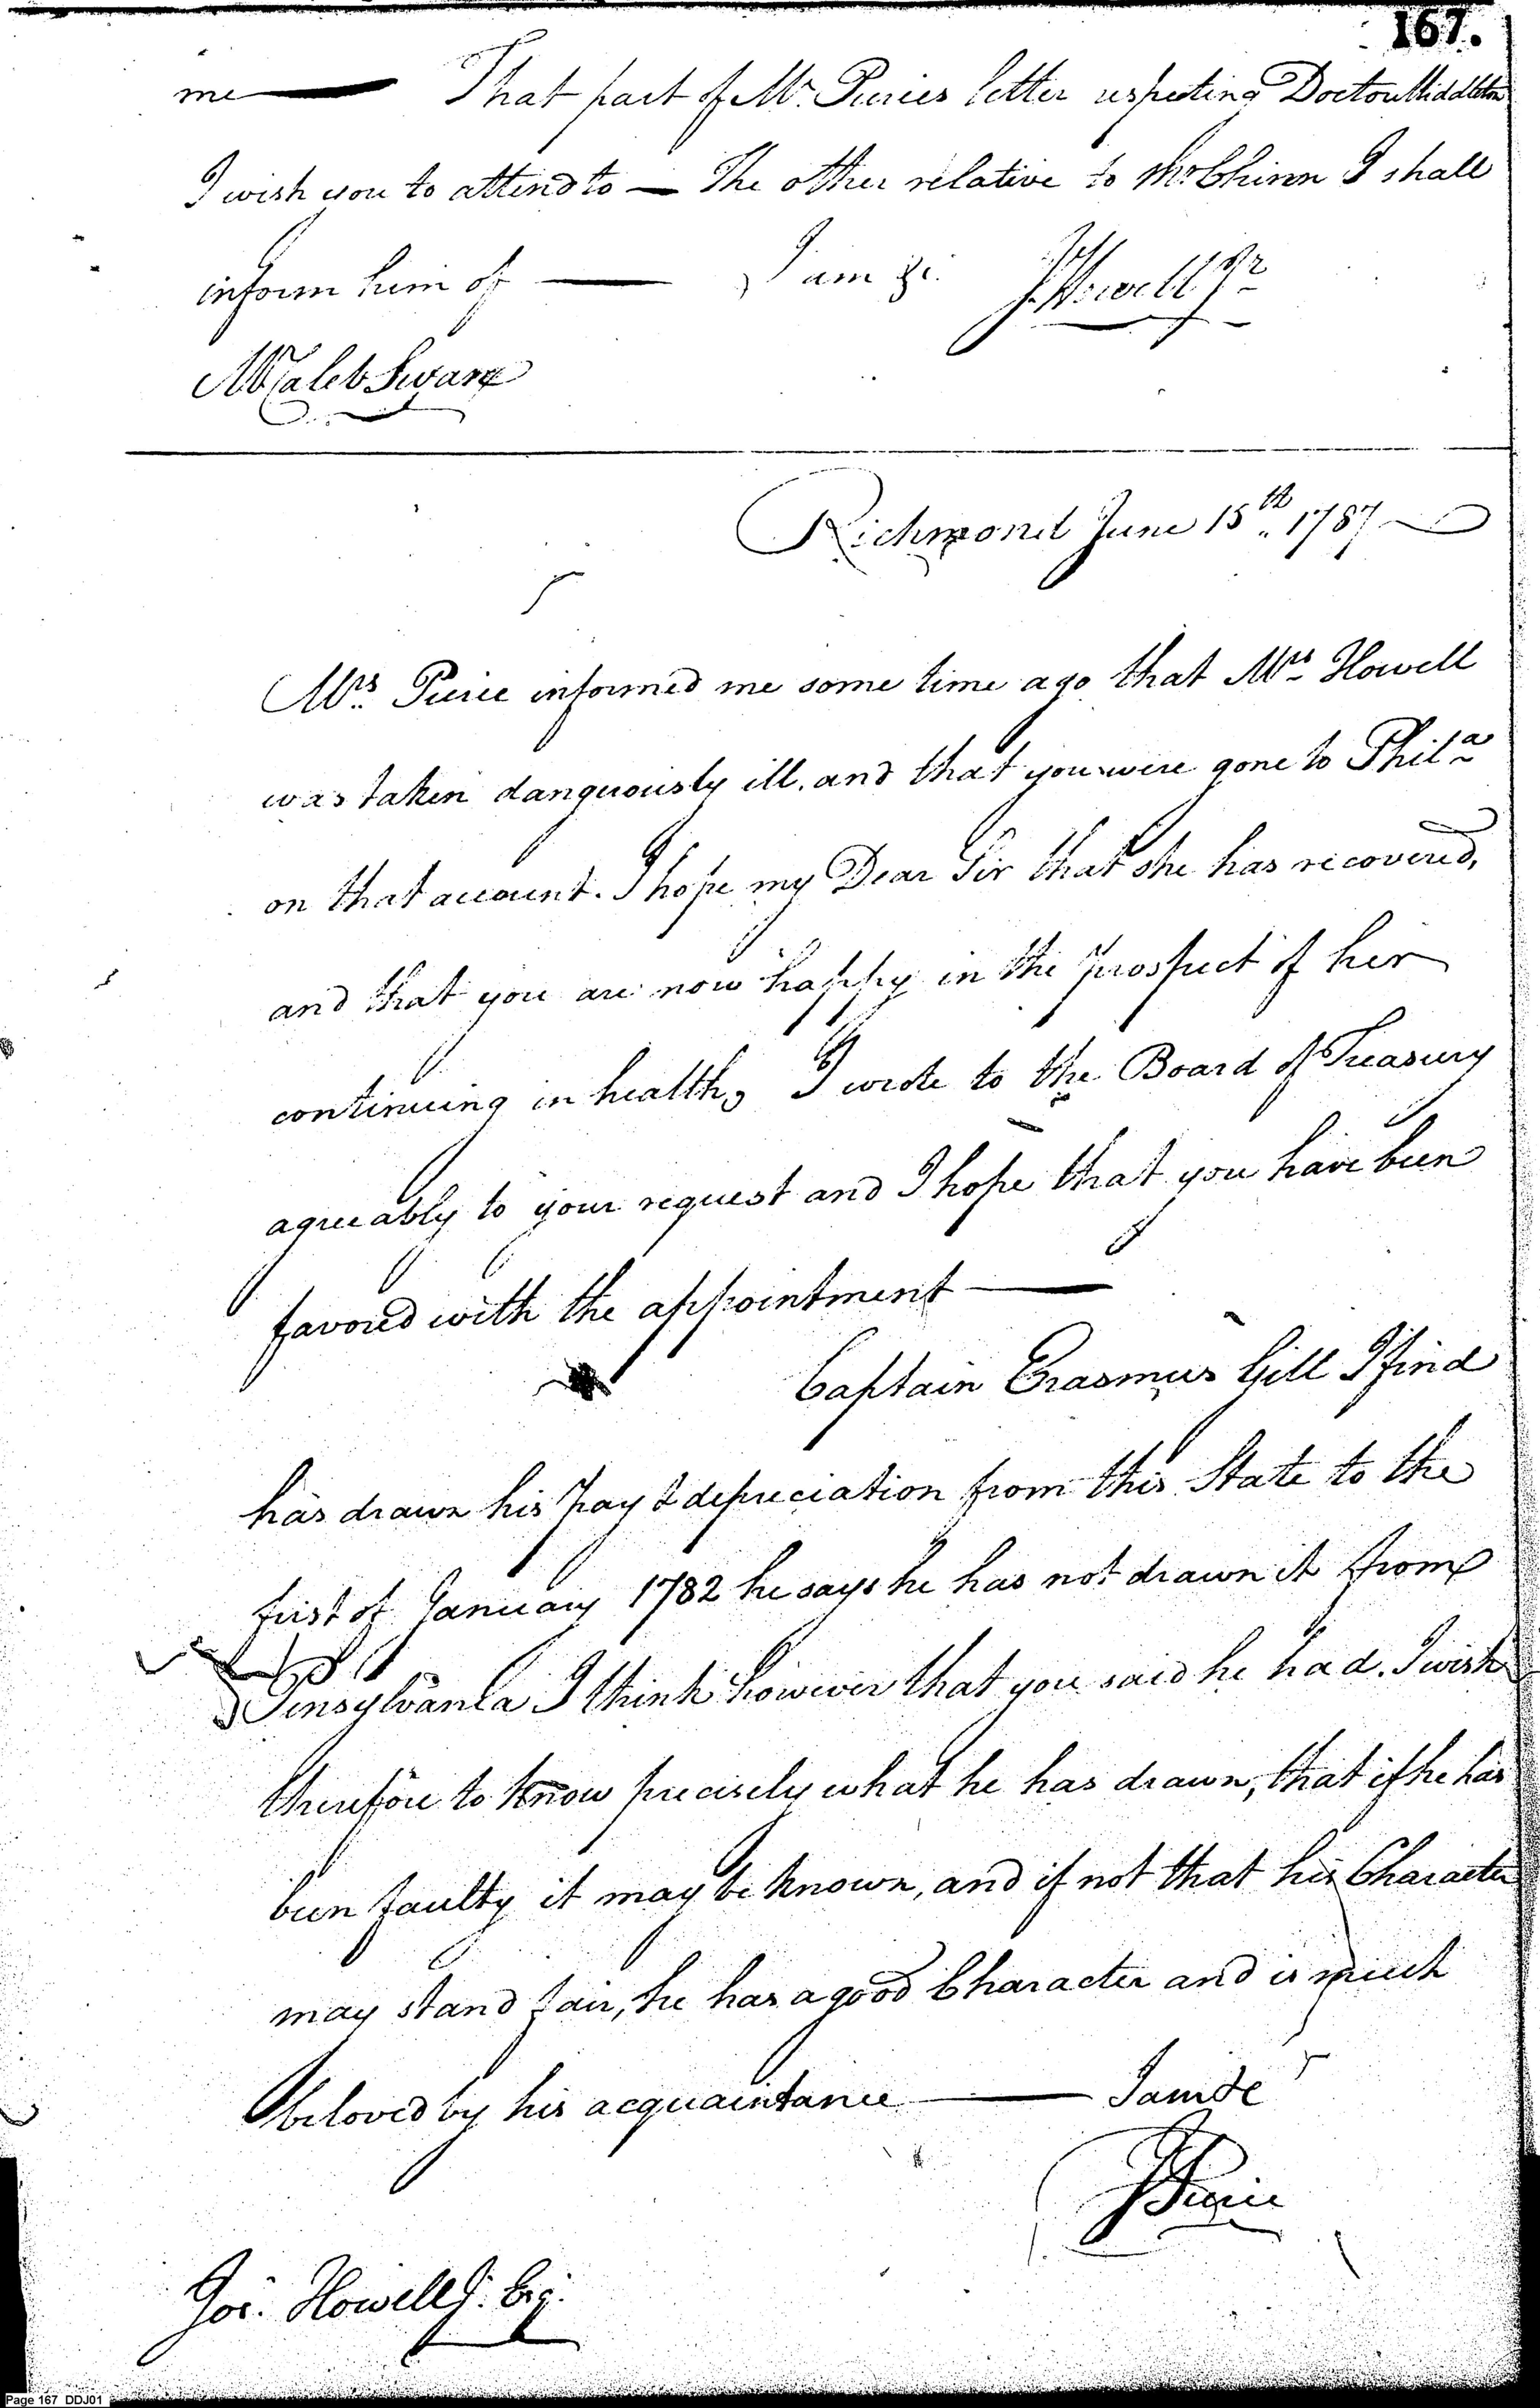 167.
me — That part of Mr. Pierces letter respecting Doctor Middleton
I wish you to attend to — The other relative to Mr Chinn I shall
inform him of — I am &c. J. Howell Jr
Mr Caleb Swan
Richmond June 15th 1787
Mrs. Pierce informed me some time ago that Mrs Howell
was taken dangerously ill, and that you were gone to Phila
on that account. I hope my Dear Sir that she has recovered,
and that you are now happy in the prospect of her
continuing in health, I wrote to the Board of Treasury
agreeably to your request and I hope that you have been
favored with the appointment —
Captain Erasmus Gill I find
has drawn his pay & depreciation from this State to the
first of January 1782 he says he has not drawn it from
Pensylvania I think however that you said he had. I wish
therefore to know precisely what he has drawn, that if he has
been faulty it may be known, and if not that his Character
may stand fair, he has a good Character and is much
beloved by his acquaintance — I am &c
J Pierce
Jos. Howell Jr. Esq.
Page 167 DDJ01